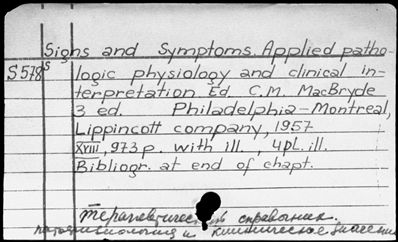 Signs and Symptoms. Applied patho-
S578s logic physiology and clinical in-
terpretation Ed. C.M. MacBryde
3 ed. Philadelphia-Montreal,
Lippincott company, 1957
XVIII, 973 p. with ill., 4 pl. ill.
Bibliogr. at end of chapt.
Терапевтический справочник.
патофизиология и клиническое значение